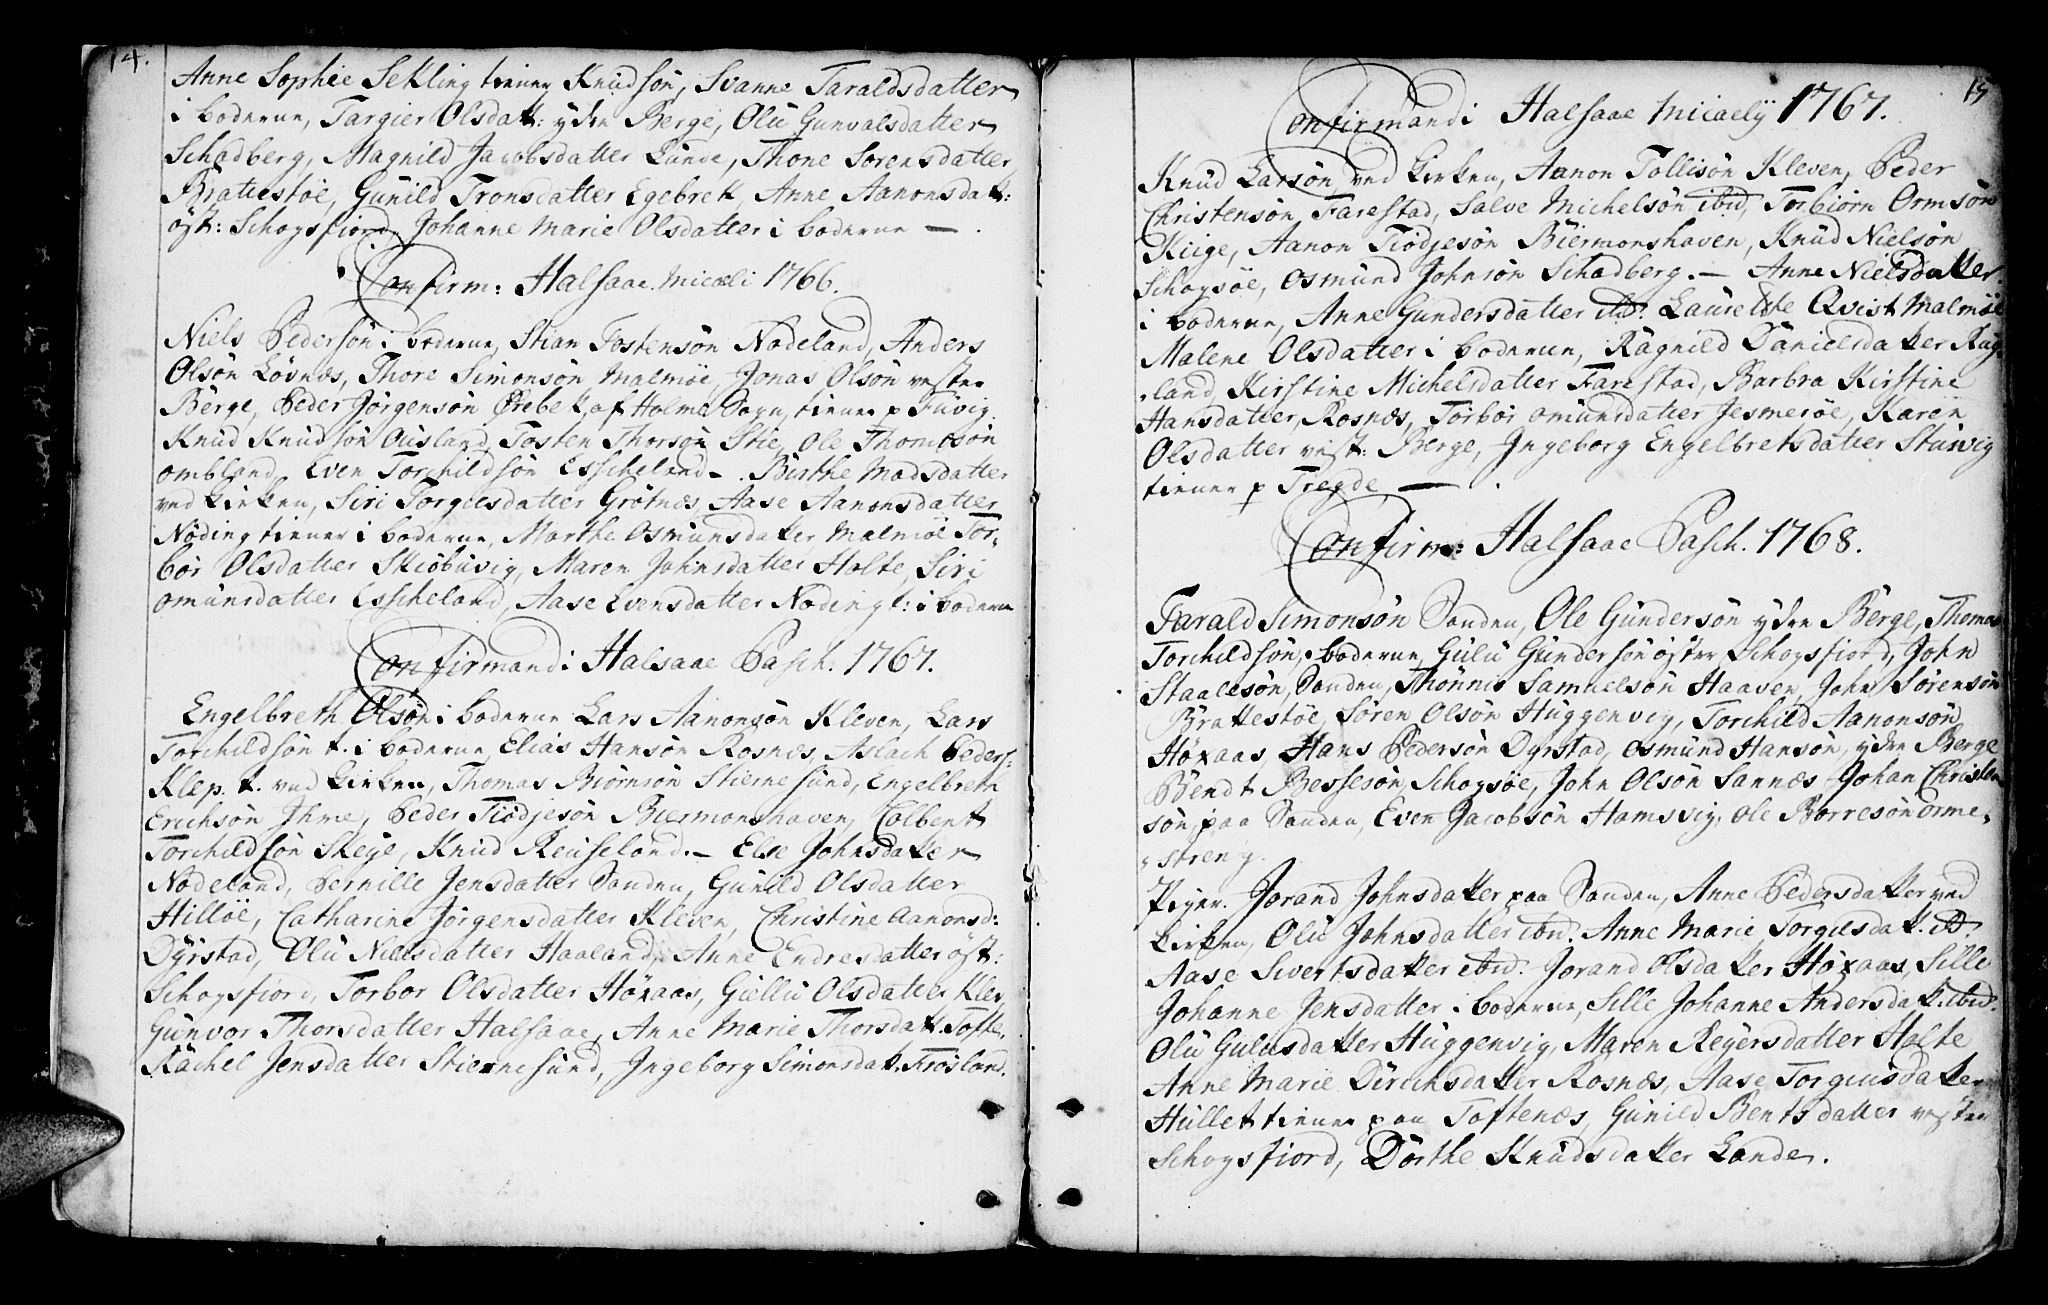 14.
Anne Sophie Sekling tiener Knudsön, Svanne Taraldsdatter
i boderne, Targier Olsdatt: ydre Berge, Olu Gunvalsdatter
Schadberg, Magnild Jacobsdatter Lunde, Thone Sorensdatter
Brattestöe, Gunild Tronsdatter Egebrek, Anne Aanonsdatt:
öst: Schogsfiord, Johanne Marie Olsdatter i boderne —.
Confirm: Halsaae Micæli 1766.
Niels Pedersön i boderne, Stian Tostensön Nodeland, Anders
Olsön Lövnæs, Thore Simonsön Malmöe, Jonas Olsön vester
Berge, Peder Jörgensön Örebek af Holme Sogn, tiener p Fuvig
Knud Knudsön Ousland, Tosten Thorsön Stie, Ole Thomesön
ombland, Even Torchildsön Esscheland —. Birthe Madsdatter
ved kirken, Siri Torgilsdatter Grötnæs, Aase Aanonsdatter
Nöding tiener i boderne, Marthe Osmunsdatter Malmöe Tor-
bör Olsdatter Skiöbuvig, Maren Johnsdatter Holte, Siri
omunsdatter Esscheland, Aase Evensdatter Noding t: i boderne
Confirmandi Halsaae Pasch. 1767.
Engelbreth Olsön i boderne Lars Aanonsön Kleven, Lars
Torchildsön t. i boderne Elias Hansön Rosnæs, Aslach Peders:
Klep. t. ved kirken, Thomas Biörnsön Stiernesund, Engelbreth
Erichsön Ihme, Peder Tiödjesön Biermonshaven, Colbent
Torchildsön Skege, Knud Reuseland. — Else Johnsdatter
Nodeland, Pernille Jensdatter Sanden, Gunild Olsdatter
Hillöe, Catharine Jörgensdatter Kleven, Christine Aanonsd:
Dyrstad, Olu Nielsdatter Haaland, Anne Endresdatter öst:
Schogsfiord, Torbor Olsdatter Höxaas, Giellu Olsdatter Klev,
Gunvor Thorsdatter Halsaae, Anne Marie Thorsdatt. Tofte,
Rachel Jensdatter Stiernesund, Ingeborg Simonsdatt. Frösland.
15
Confirmandi Halsaae Micaely 1767.
Knud Larsön ved kirken, Aanon Tollisön Kleven, Peder
Christensön, Farestad, Salve Michelsön ibid, Torbiörn Ormsön
Kiige, Aanon Tiödjesön Biermonshaven, Knud Nielsön
Schogsöe, Osmund Johnsön Schadberg. — Anne Nielsdatter
i boderne, Anne Gundersdatter ibid. Laurentze Qvist Malmöe
Malene Olsdatter i boderne, Ragnild Danielsdatter Rug-
land, Kirstine Michelsdatter Farestad, Barbra Kirstine
Hansdatter, Rosnæs, Torbör omunsdatter Jesmeröe, Karen
Olsdatter vest: Berge, Ingeborg Engelbretsdatter Stuvig
tiener p Tregde, — .
Confirm: Halsaae Pasch. 1768.
Tarald Simonsön Sanden, Ole Gundersön ydre Berge, Thomas
Torchildsön i boderne, Gulu Gundersön öster Schogsfiord, John
Staalesön, Sanden, Thönnis Samuelsön Haaven, John Sörensön
Brattestöe, Sören Olsön Huggenvig, Torchild Aanonsön
Höxaas, Hans Pedersön Dyrstad, Osmund Hansön, ydre Berge
Bendt Bessesön, Schogsöe, John Olsön Sannæs, Johan Christen
sön, paa Sanden, Even Jacobsön Hamsvig, Ole Börresön orme-
streng.
Piger. Jorand Johnsdatter paa Sanden, Anne Pedersdatter ved
kirken, Olu Johnsdatter ibid. Anne Marie Torgilsdatt. ib.
Aase Sivertsdatter ibid. Jorand Olsdatter Höxaas, Sille
Johanne Jensdatter i boderne, Sille Johanne Andersdatt. ibid.
Olu Gulusdatter Huggenvig, Maren Reyersdatter Holte
Anne Marie Dirichsdatter Rosnæs, Aase Torgiusdatter
Hullet tiener paa Toftenæs, Gunild Bentsdatter vester
Schogsfiord, Dorthe Knudsdatter Lande.